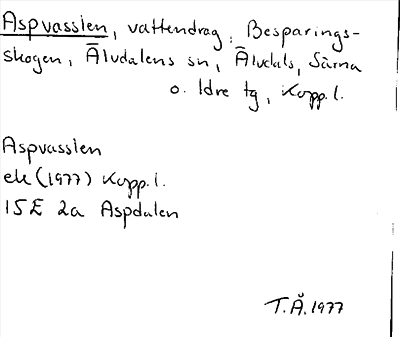 Aspvasslen, vattendrag, Besparings-
skogen, Älvdalens sn, Älvdals, Särna
o. Idre tg, Kopp.l.
Aspvasslen
ek (1977) Kopp.l.
15E 2a Aspdalen
T.Å. 1977